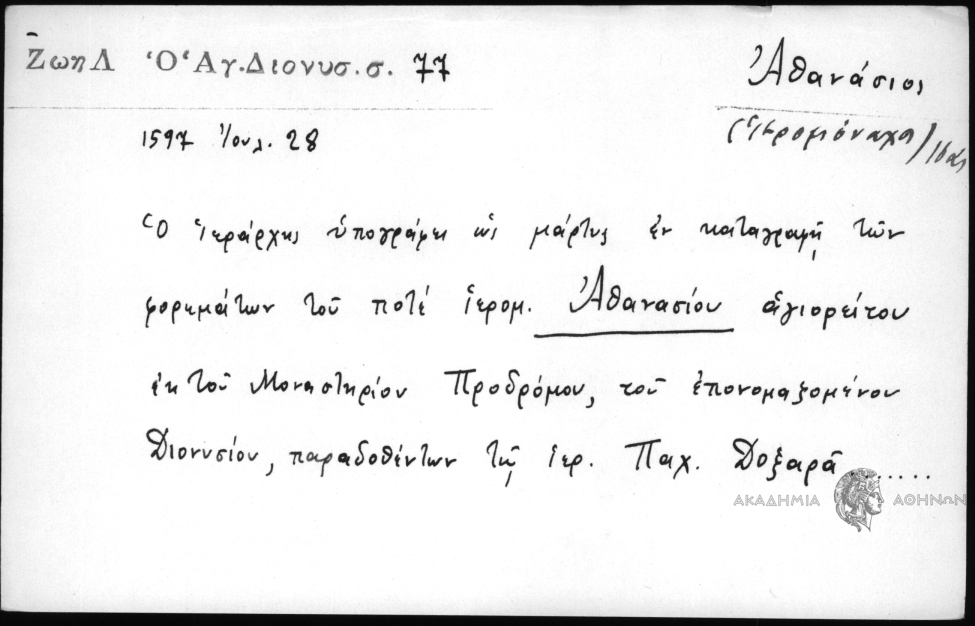 Ζωη Λ Ὁ Ἁγ.Διονυσ.σ. 77
Ἀθανάσιος
(ἱερομόναχος)
1597 Ἰουλ. 28
Ὁ Ἱεράρχης ὑπογράφει ὡς μάρτυς ἐν καταγραφῇ τῶν
φορεμάτων τοῦ ποτέ ἱερομ. Ἀθανασίου ἁγιορείτου
ἐκ τοῦ Μοναστηρίου Προδρόμου, τοῦ ἐπονομαζομένου
Διονυσίου, παραδοθέντων τῷ ἱερ. Παχ. Δοξαρᾶ ......
ΑΚΑΔΗΜΙΑ ΑΘΗΝΩΝ